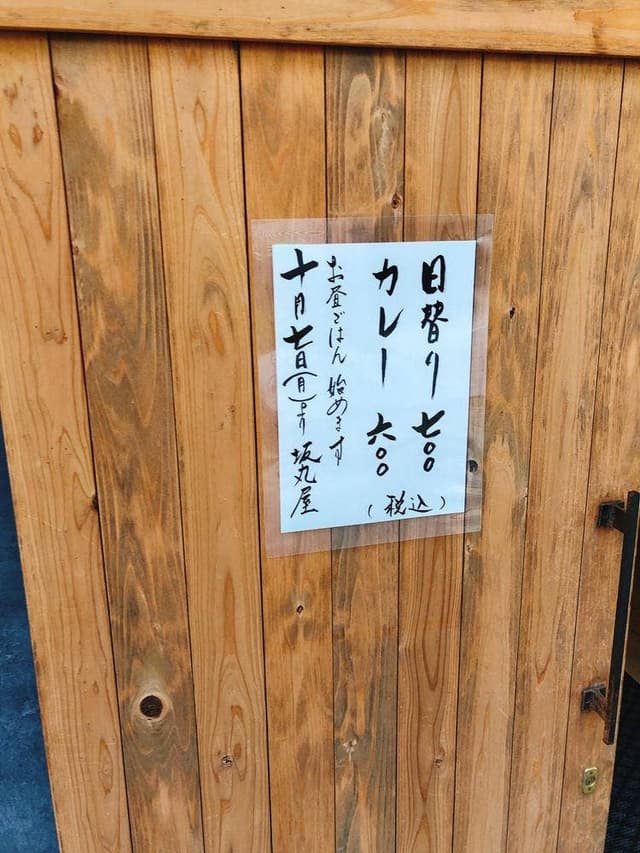 日替り 七〇〇
カレー 六〇〇
(税込)
お昼ごはん 始めます
十月七日(月)より 坂丸屋